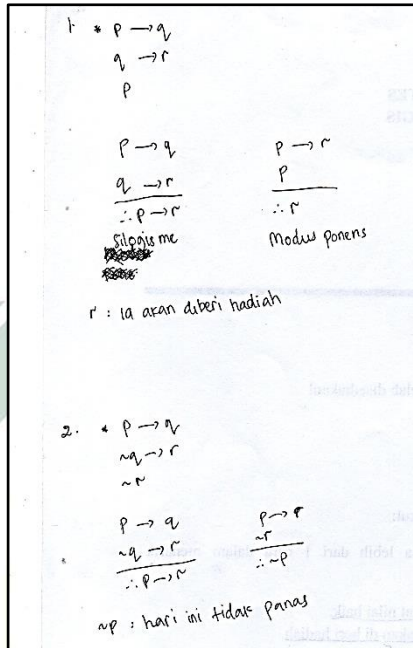 1. * p → q
q → r
p
p → q p → r
q → r p
∴ p → r ∴ r
Silogisme Modus ponens
r : ia akan diberi hadiah
2. * p → q
~q → r
~r
p → q p → r
~q → r ~r
∴ p → r ∴ ~p
~p : hari ini tidak panas